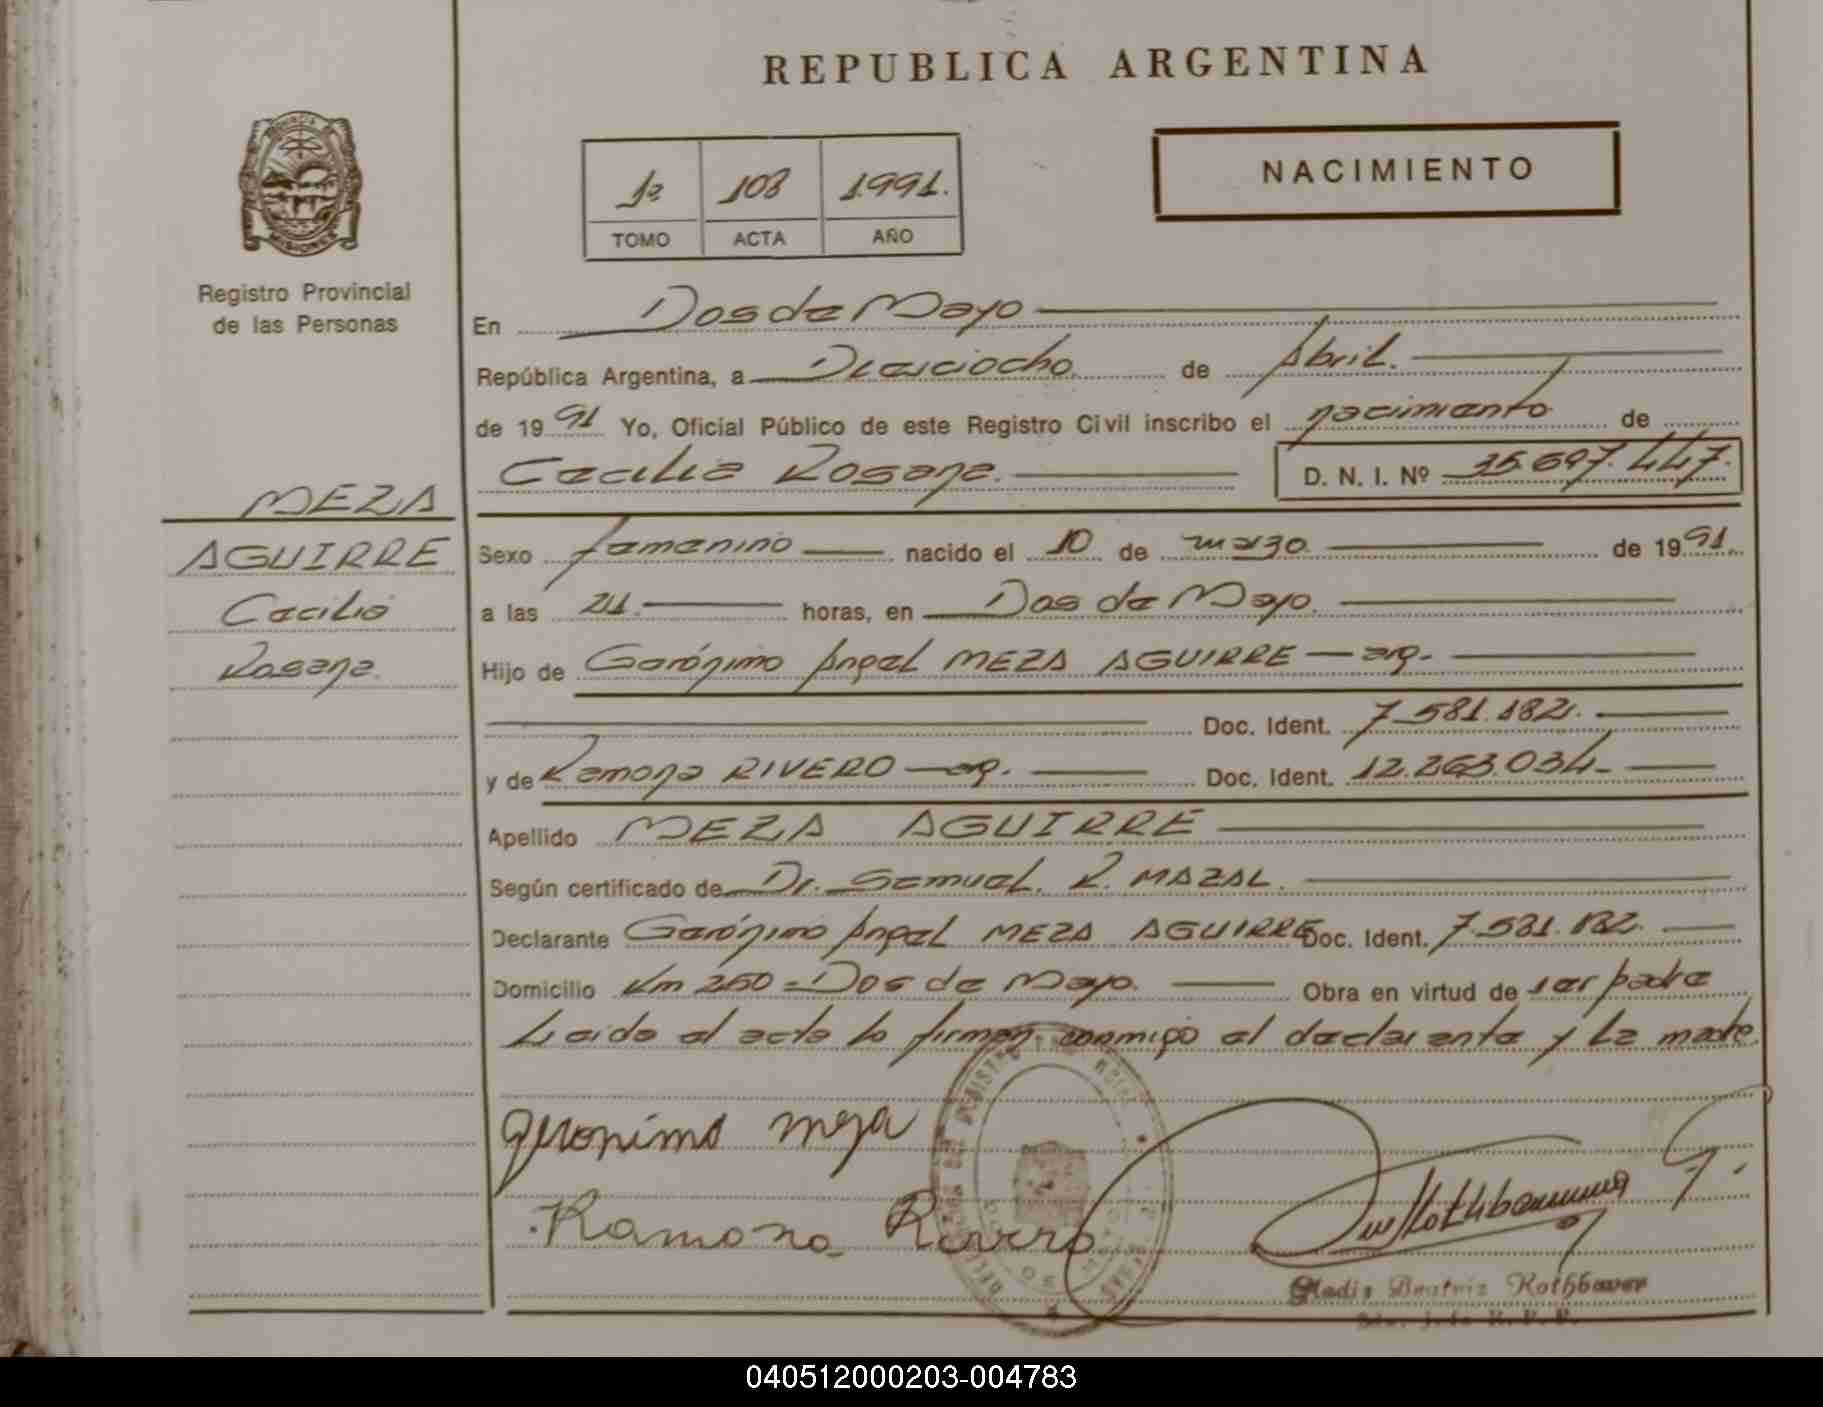 REPUBLICA ARGENTINA
NACIMIENTO
1ª 108 1991.
TOMO ACTA AÑO
PROVINCIA
MISIONES
Registro Provincial
de las Personas
En Dos de Mayo
República Argentina, a Dieciocho de Abril.
de 1991 Yo, Oficial Público de este Registro Civil inscribo el nacimiento de
Cecilia Rosana. D. N. I. Nº 35.697.447.
MEZA
AGUIRRE
Cecilia
Rosana.
Sexo femenino nacido el 10 de marzo de 1991.
a las 21. horas, en Dos de Mayo.
Hijo de Gerónimo Angel MEZA AGUIRRE — arg.
Doc. Ident. 7.581.182.
y de Ramona RIVERO — arg. Doc. Ident. 12.263.034.
Apellido MEZA AGUIRRE
Según certificado de Dr. Samuel. R. MAZAL.
Declarante Gerónimo Angel MEZA AGUIRRE Doc. Ident. 7.581.182.
Domicilio Km 250 = Dos de Mayo. Obra en virtud de ser padre
Leida el acta la firman conmigo el declarante y la madre.
Geronimo meza
Ramona Rivero
Gladis Beatriz Rothbauer
040512000203-004783